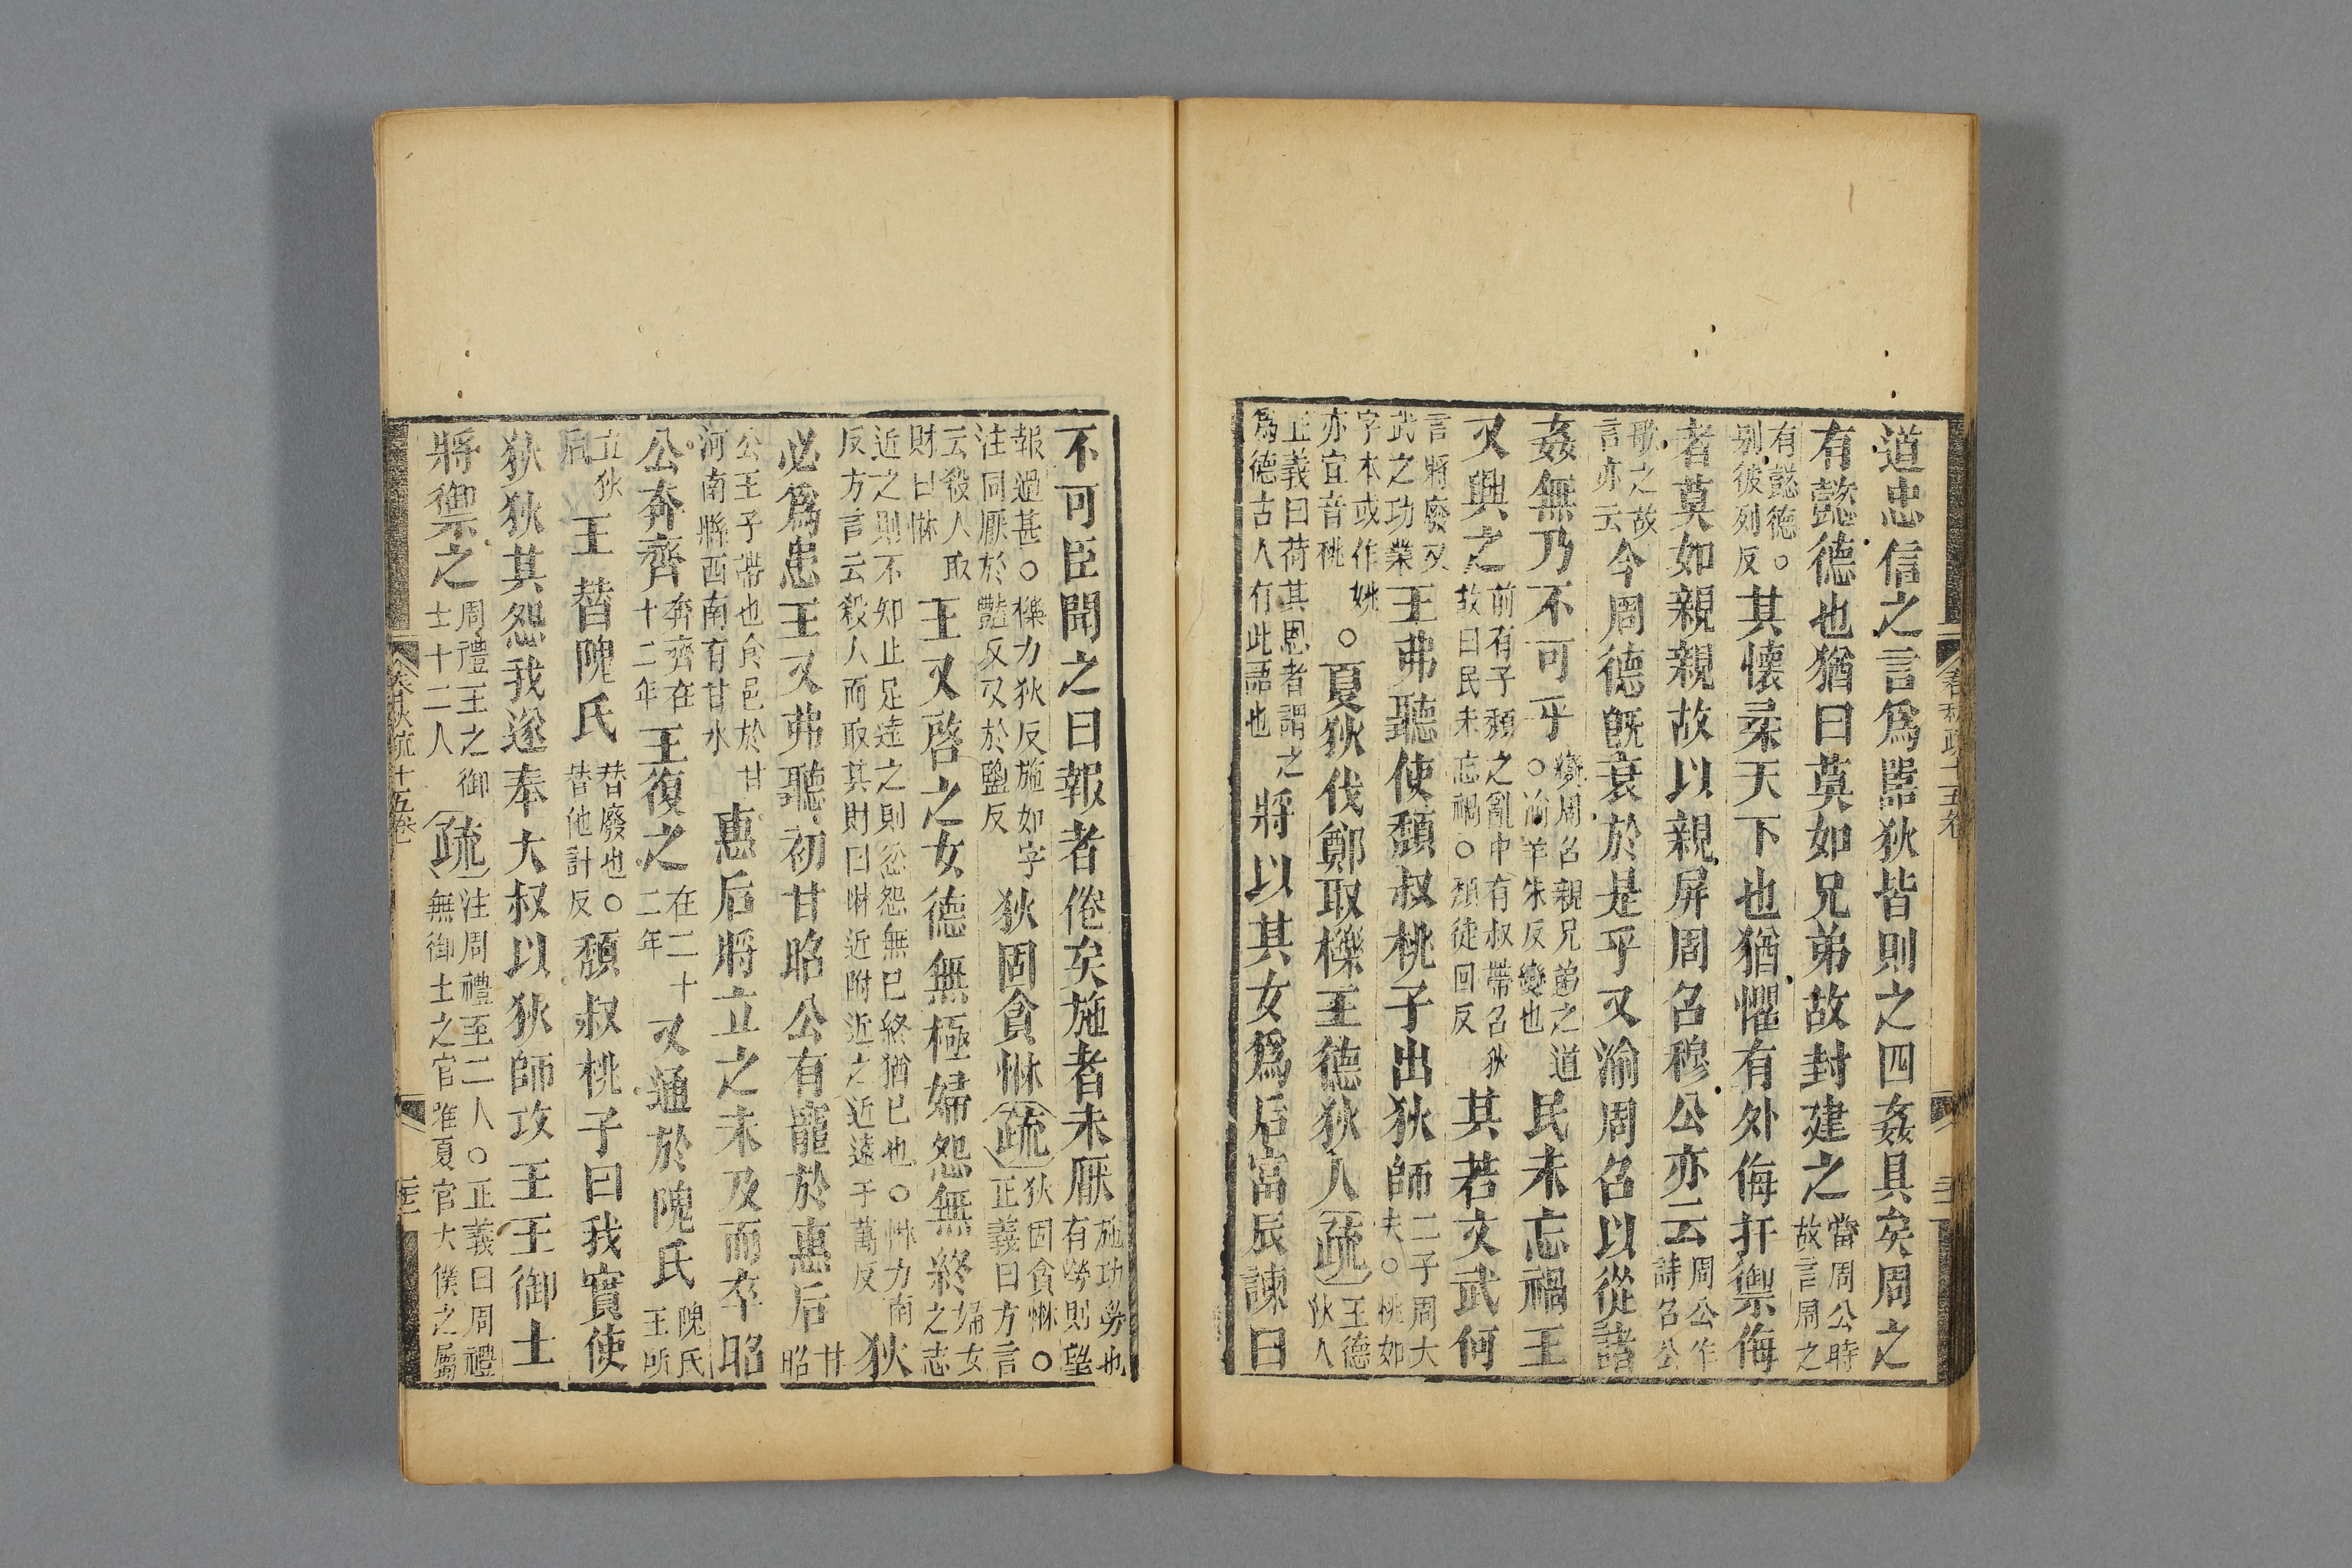 道忠信之言爲嚚狄皆則之四姦具矣周之
有懿德也猶曰莫如兄弟故封建之當周公時故言周之
有懿德○別彼列反其懷柔天下也猶懼有外侮扞禦侮
者莫如親親故以親屏周召穆公亦云周公作詩召公
歌之故言亦云今周德旣衰於是乎又渝周召以從諸
姦無乃不可乎變周召親兄弟之道○渝羊朱反變也民未忘禍王
又興之前有子頹之亂中有叔帶召狄故曰民未忘禍○頹徒回反其若文武何
言將廢文武之功業王弗聽使頹叔桃子出狄師二子周大夫○桃如
字本或作姚亦宜音桃○夏狄伐鄭取櫟王德狄人疏王德狄人
正義曰荷其恩者謂之爲德古人有此語也將以其女爲后富辰諫曰
不可臣聞之曰報者倦矣施者未厭施功勞也有勞則望
報過甚○櫟力狄反施如字注同厭於豔反又於鹽反狄固貪惏疏狄固貪惏○正義曰方言
云殺人取財曰惏王又啓之女德無極婦怨無終婦女之志
近之則不知止足遠之則忿怨無已終猶已也○惏力南反方言云殺人而取其財曰惏近附近之近遠于萬反狄
必爲患王又弗聽初甘昭公有寵於惠后甘昭
公王子帶也食邑於甘河南縣西南有甘水惠后將立之未及而卒昭
公奔齊奔齊在十二年王復之在二十二年又通於隗氏隗氏王所
立狄后王替隗氏替廢也○替他計反頹叔桃子曰我實使
狄狄其怨我遂奉大叔以狄師攻王王御士
將禦之周禮王之御士十二人疏注周禮至二人○正義曰周禮無御士之官唯夏官大僕之屬